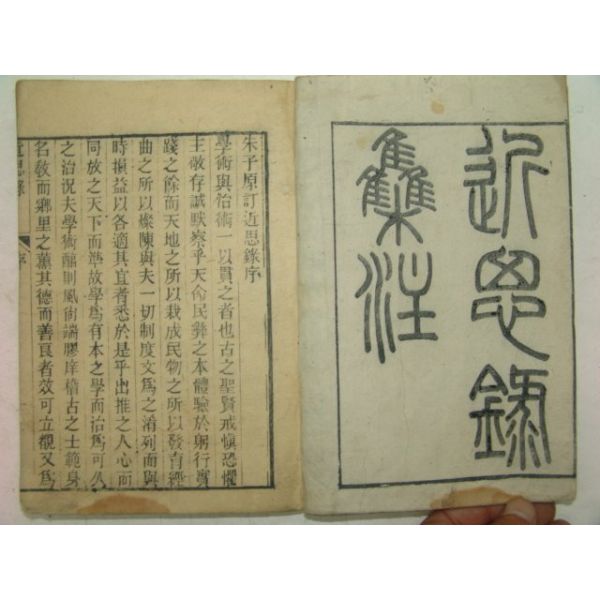 近思錄
集注
朱子原訂近思錄序
學術與治術一以貫之者也古之聖賢戒愼恐懼
主敬存誠默察乎天命民彝之本體驗於躬行實
踐之餘而天地之所以裁成民物之所以發育經
曲之所以燦陳與夫一切制度文爲之淆列而與
時損益以各適其宜者悉於是乎出推之人心而
同放之天下而準故學爲有本之學而治爲可久
之治況夫學術醇則風尚端膠庠稽古之士範身
名敎而鄉里之薰其德而善良者效可立覩又爲
近思錄 序